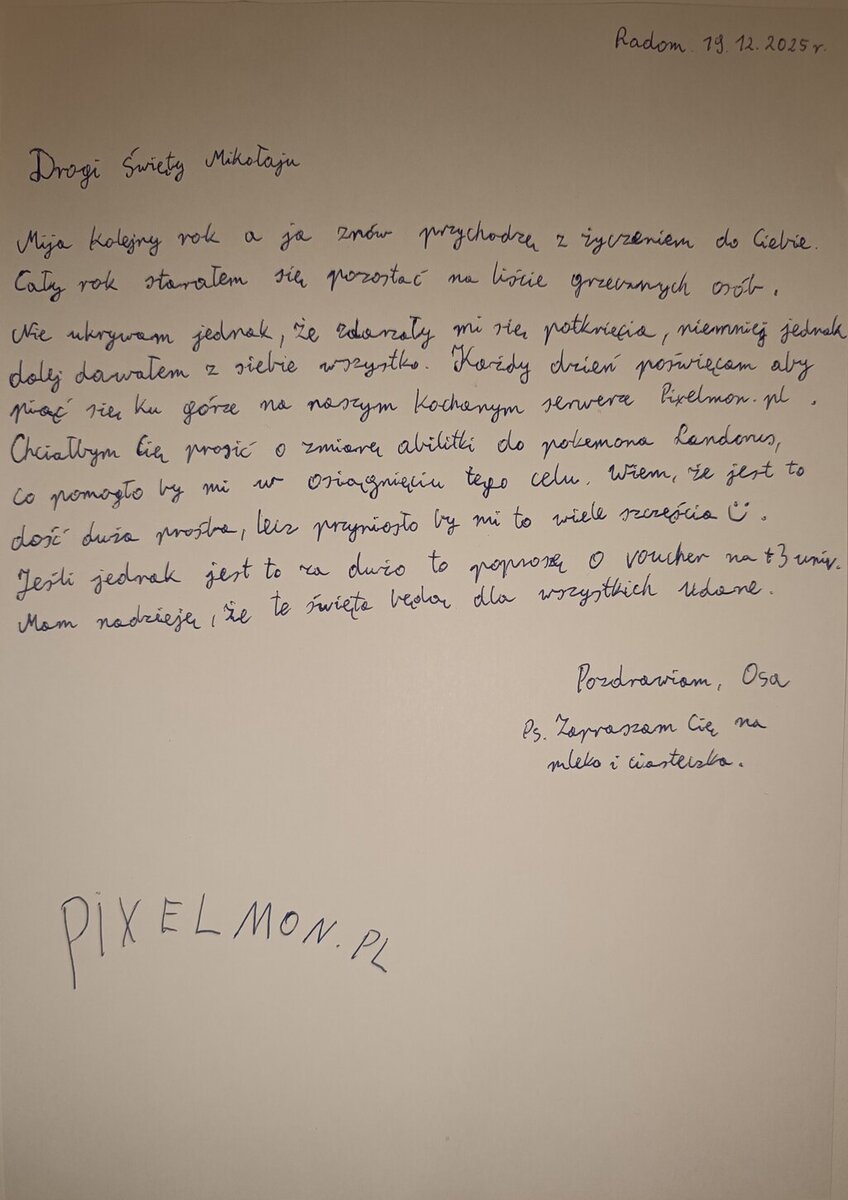 Radom. 19.12.2025r.
Drogi Święty Mikołaju
Mija kolejny rok a ja znów przychodzę z życzeniem do Ciebie.
Cały rok starałem się pozostać na liście grzecznych osób.
Nie ukrywam jednak, że zdarzały mi się potknięcia, niemniej jednak
dalej dawałem z siebie wszystko. Każdy dzień poświęcam aby
piąć się ku górze na naszym kochanym serwerze Pixelmon.pl.
Chciałbym Cię prosić o zmianę abilitki do pokemona Landorus,
co pomogło by mi w osiągnięciu tego celu. Wiem, że jest to
dość duża prośba, lecz przyniosło by mi to wiele szczęścia Ü.
Jeśli jednak jest to za dużo to poproszę o voucher na t3 univ.
Mam nadzieję, że te święta będą dla wszystkich udane.
Pozdrawiam, Osa
Ps. Zapraszam Cię na
mleko i ciasteczka.
PiXELMON.PL